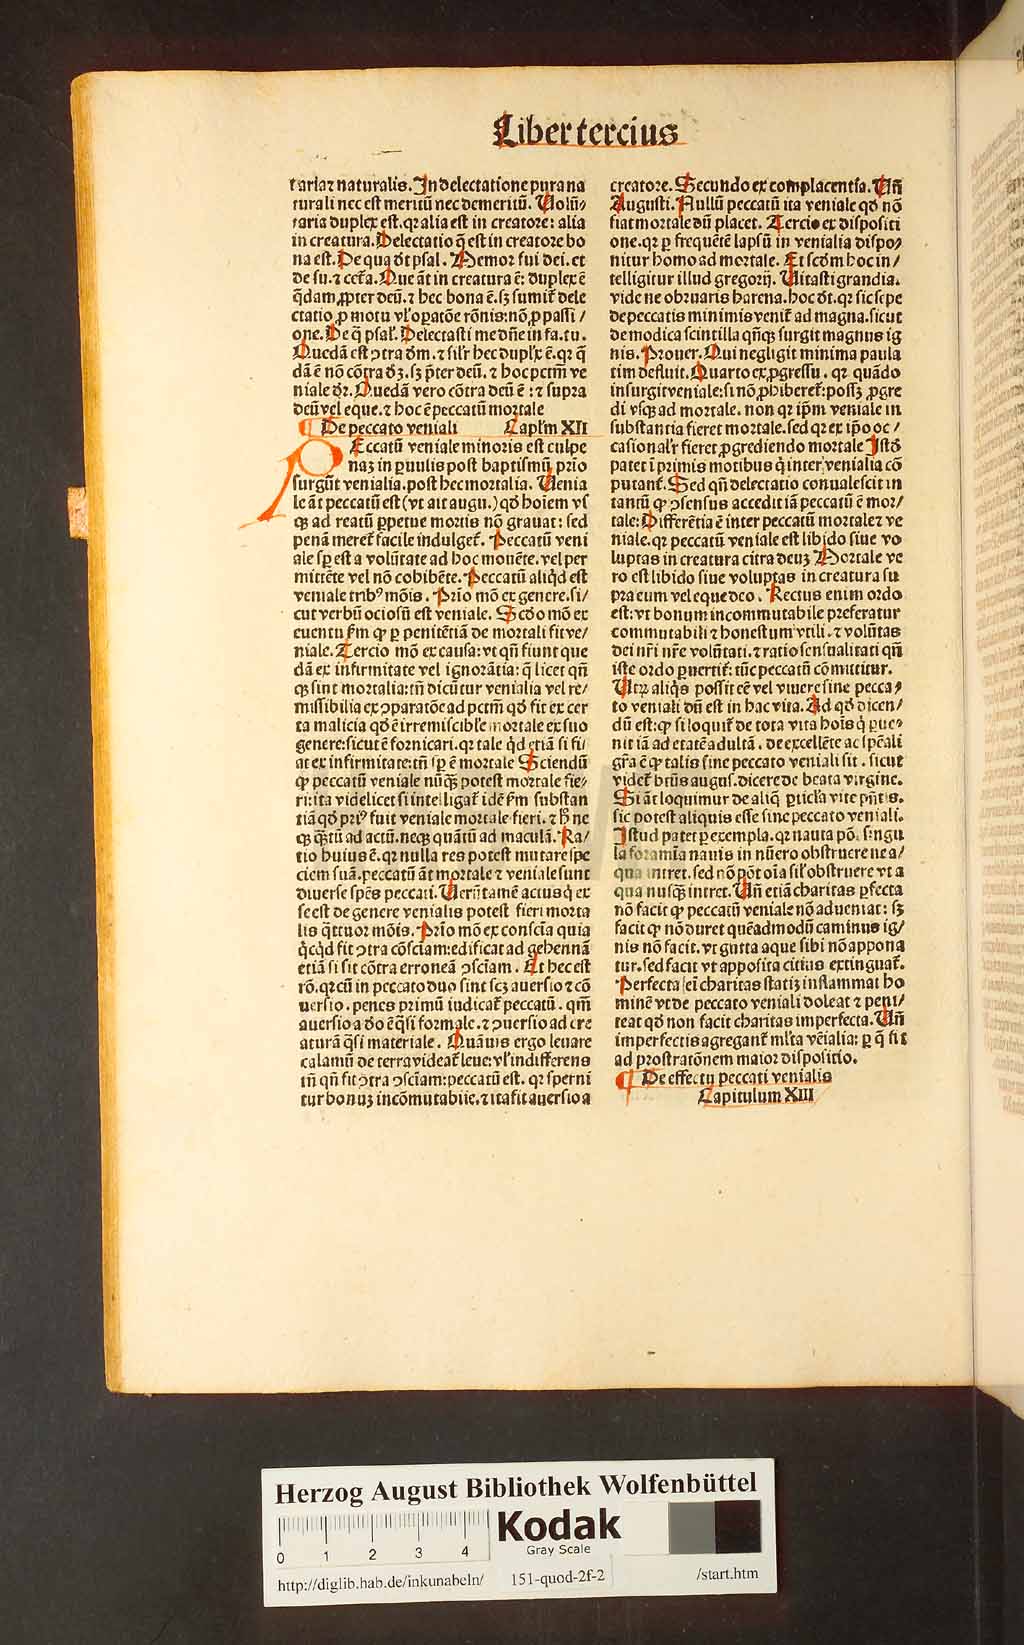 Liber tercius
taria⁊ naturalis. In delectatione pura na
turali nec est meritū nec demeritū. Uolū-
taria duplex est. qꝛ alia est in creatore: alia
in creatura. Delectatio q̄ est in creatore bo
na est. De qua dr̄t psal. Memor fui dei. et
de su. ⁊ ceƭ̄a. Que āt in creatura ē: duplex ē
q̄dam ꝓpter deū. ⁊ hec bona ē. sꝫ sumit̄ dele
ctatio ꝓ motu vl̓ oꝑatōe rōnis: nō ꝓ passi/
one. De q̄ psal̓. Delectasti me dn̄e in fa. tu.
Quedā est ↄtra dm̄. ⁊ sil̓r hec duplꝛ ē. qꝛ q̄
dā ē nō cōtra dꝫ. sꝫ p̄ter deū. ⁊ hoc pctm̄ ve
niale dꝛ. Quedā vero cōtra deū ē: ⁊ supra
deū vel eque. ⁊ hoc ē peccatū mortale
¶ De peccato veniali Capl̓m XII
PEccatū veniale minoris est culpe
naꝫ in ꝑuulis post baptismū prio
surgūt venialia. post hec mortalia. Uenia
le āt peccatū est (vt ait augu.) qd̓ hoiem vs
qꝫ ad reatū ꝑpetue mortis nō grauat: sed
penā meret̄ facile indulget̄. Peccatū veni
ale sp̄ est a volūtate ad hoc mouēte. vel per
mittēte vel nō cohibēte. Peccatū aliqd̓ est
veniale tribꝰ mōis. Prio mō ex genere. si/
cut verbū ociosū est veniale. Scd̓o mō ex
euentu ẜm qꝫ ꝑ penitētiā de mortali fit ve/
niale. Tercio mō ex causa: vt qn̄ fiunt que
dā ex infirmitate vel ignorātia: q̄ licet qn̄
qꝫ sint mortalia: tn̄ dicūtur venialia vel re/
missibilia ex ↄparatōe ad pctm̄ qd̓ fit ex cer
ta malicia qd̓ ē irremiscibl̓e mortale ex suo
genere: sicut ē fornicari. qꝛ tale qd̓ etiā si fi/
at ex infirmitate: tn̄ sp̄ ē mortale Sciendū
qꝫ peccatū veniale nūqꝫ potest mortale fie/
ri: ita videlicet si intelligat̄ idē ẜm substan
tiā qd̓ priꝰ fuit veniale mortale fieri. ⁊ h̓ ne
qꝫ qꝫtū ad actū. neqꝫ quātū ad maculā. Ra/
tio huius ē. qꝛ nulla res potest mutare spe
ciem suā. peccatū āt mortale ⁊ veniale sunt
diuerse sp̄es peccati. Uerū tamē actus q̓ ex
se est de genere venialis potest fieri morta
lis q̄ttuor mōis. Prio mō ex conscia quia
q̓cqd̓ fit ↄtra cōsciam: edificat ad gehennā
etiā si sit cōtra erroneā ↄsciam. Et hec est
rō. qꝛ cū in peccato duo sint scꝫ auersio ⁊ cō
uersio. penes primū iudicat̄ peccatū. qm̄
auersio a do ē q̄si formale. ⁊ ↄuersio ad cre
aturā q̄si materiale. Quāuis ergo leuare
calamū de terra videat̄ leue: vl̓ indifferens
tn̄ qn̄ fit ↄtra ↄsciam: peccatū est. qꝛ sperni
tur bonuꝫ incōmutabile. ⁊ ita fit auersio a
creatore. Secundo ex complacentia. Un̄
Augusti. Nullū peccatū ita veniale qd̓ nō
fiat mortale dū placet. Tercio ex dispositi
one. qꝛ ꝑ frequētē lapsū in venialia dispo/
nitur homo ad mortale. Et scd̓m hoc in/
telligitur illud gregorij. Uitasti grandia.
vide ne obruaris harena. hoc dr̄t. qꝛ sic sepe
de peccatis minimis venit̄ ad magna. sicut
de modica scintilla qn̄qꝫ surgit magnus ig
nis. Prouer. Qui negligit minima paula
tim defluit. Quarto ex ꝓgressu. qꝛ quādo
insurgit veniale: si nō ꝓhiberet̄: possꝫ ꝓgre
di vsqꝫ ad mortale. non qꝛ ip̄m veniale in
substantia fieret mortale. sed qꝛ ex ip̄o oc/
casional̓r fieret ꝓgrediendo mortale Istd̓
patet ī primis motibus q̓ inter venialia cō
putant̄. Sed qn̄ delectatio conualescit in
tantū qꝫ ↄsensus accedit iā peccatū ē mor/
tale: Differētia ē inter peccatū mortale⁊ ve
niale. qꝛ peccatū veniale est libido siue vo
luptas in creatura citra deuꝫ Mortale ve
ro est libido siue voluptas in creatura su
pra eum vel eque deo. Rectus enim ordo
est: vt bonum incommutabile preferatur
commutabili ⁊ honestum vtili. ⁊ volūtas
dei nr̄i nr̄e volūtati. ⁊ ratio sensualitati qn̄
iste ordo ꝑuertit̄: tūc peccatū cōmittitur.
Utꝝ aliq̓s possit eē vel viuere sine pecca/
to veniali dū est in hac vita. Ad qd̓ dicen/
dū est: qꝫ si loquit̄ de tota vita hoīs q̓ ꝑue-
nit iā ad etatē adultā. de excellēte ac sp̄eali
gr̄a ē qꝫ talis sine peccato veniali sit. sicut
videt̄ btūs augus. dicere de beata virgine.
Si āt loquimur de aliq̄ ꝑticl̓a vite pn̄tis.
sic potest aliquis esse sine peccato veniali.
Istud patet ꝑ exempla. qꝛ nauta pōt singu
la foramīa nauis in nūero obstruere ne a/
qua intret. sed nō pōt oīa sil̓ obstruere vt a
qua nusqꝫ intret. Un̄ etiā charitas ꝑfecta
nō facit qꝫ peccatū veniale nō adueniat: sꝫ
facit qꝫ nō duret quēadmodū caminus ig/
nis nō facit. vt gutta aque sibi nō appona
tur. sed facit vt apposita citius extinguat̄.
Perfecta ei charitas statiꝫ inflammat ho
minē vt de peccato veniali doleat ⁊ peni/
teat qd̓ non facit charitas imperfecta. Un̄
imperfectis agregant̄ ml̓ta vēialia: ꝑ q̄ fit
ad prostratōnem maior dispositio.
¶ De effectu peccati venialis
Capitulum XIII
Herzog August Bibliothek Wolfenbüttel
0 1 2 3 4
Kodak
Gray Scale
http://diglib.hab.de/inkunabeln/ 151-quod-2f-2 /start.htm